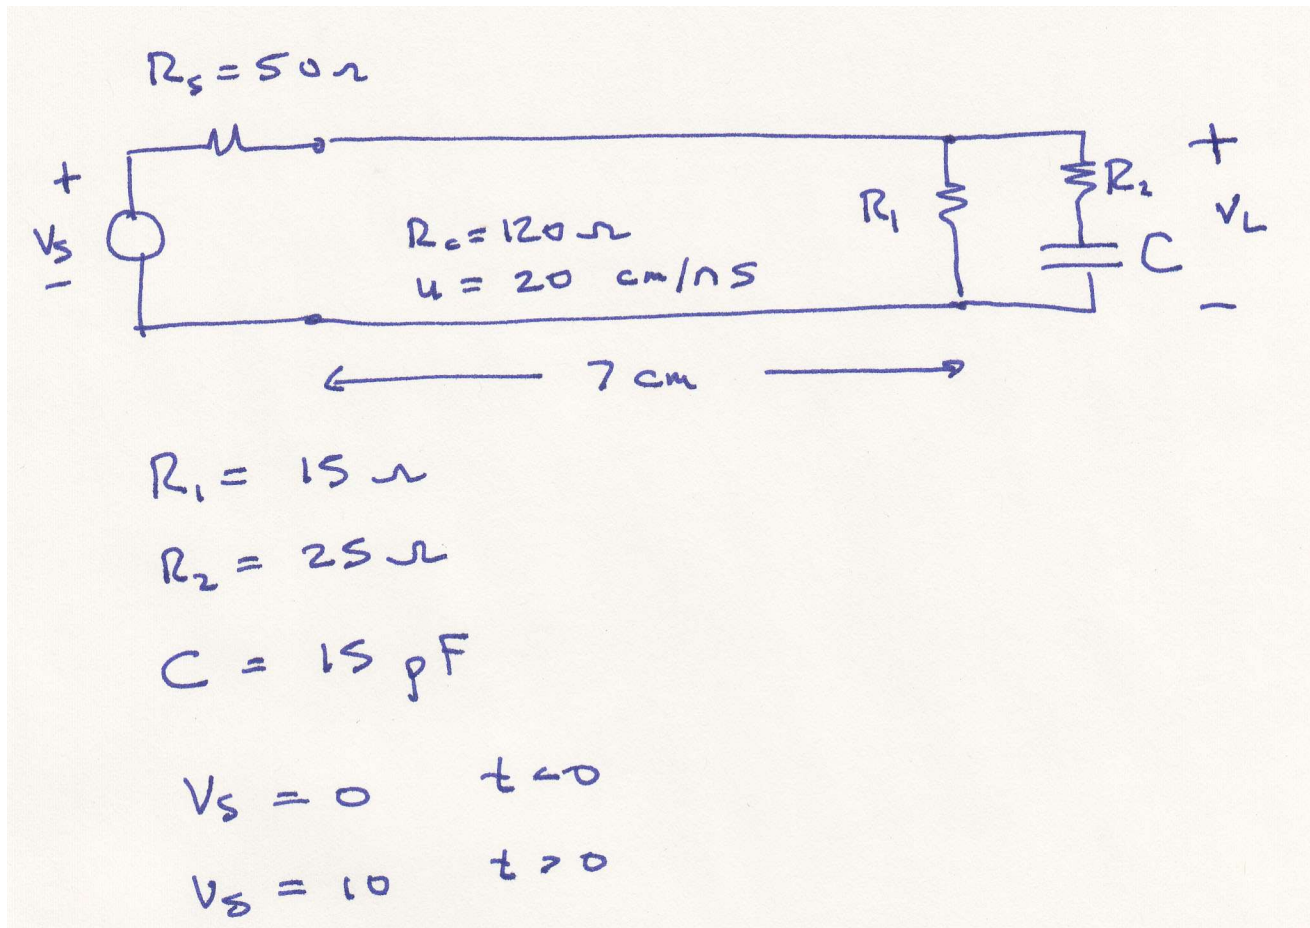 Rs = 50Ω
+
Vs
−
Rc = 120 Ω
u = 20 cm/ns
R1
R2
C
+
VL
−
7 cm
R1 = 15 Ω
R2 = 25 Ω
C = 15 pF
Vs = 0 t<0
Vs = 10 t>0